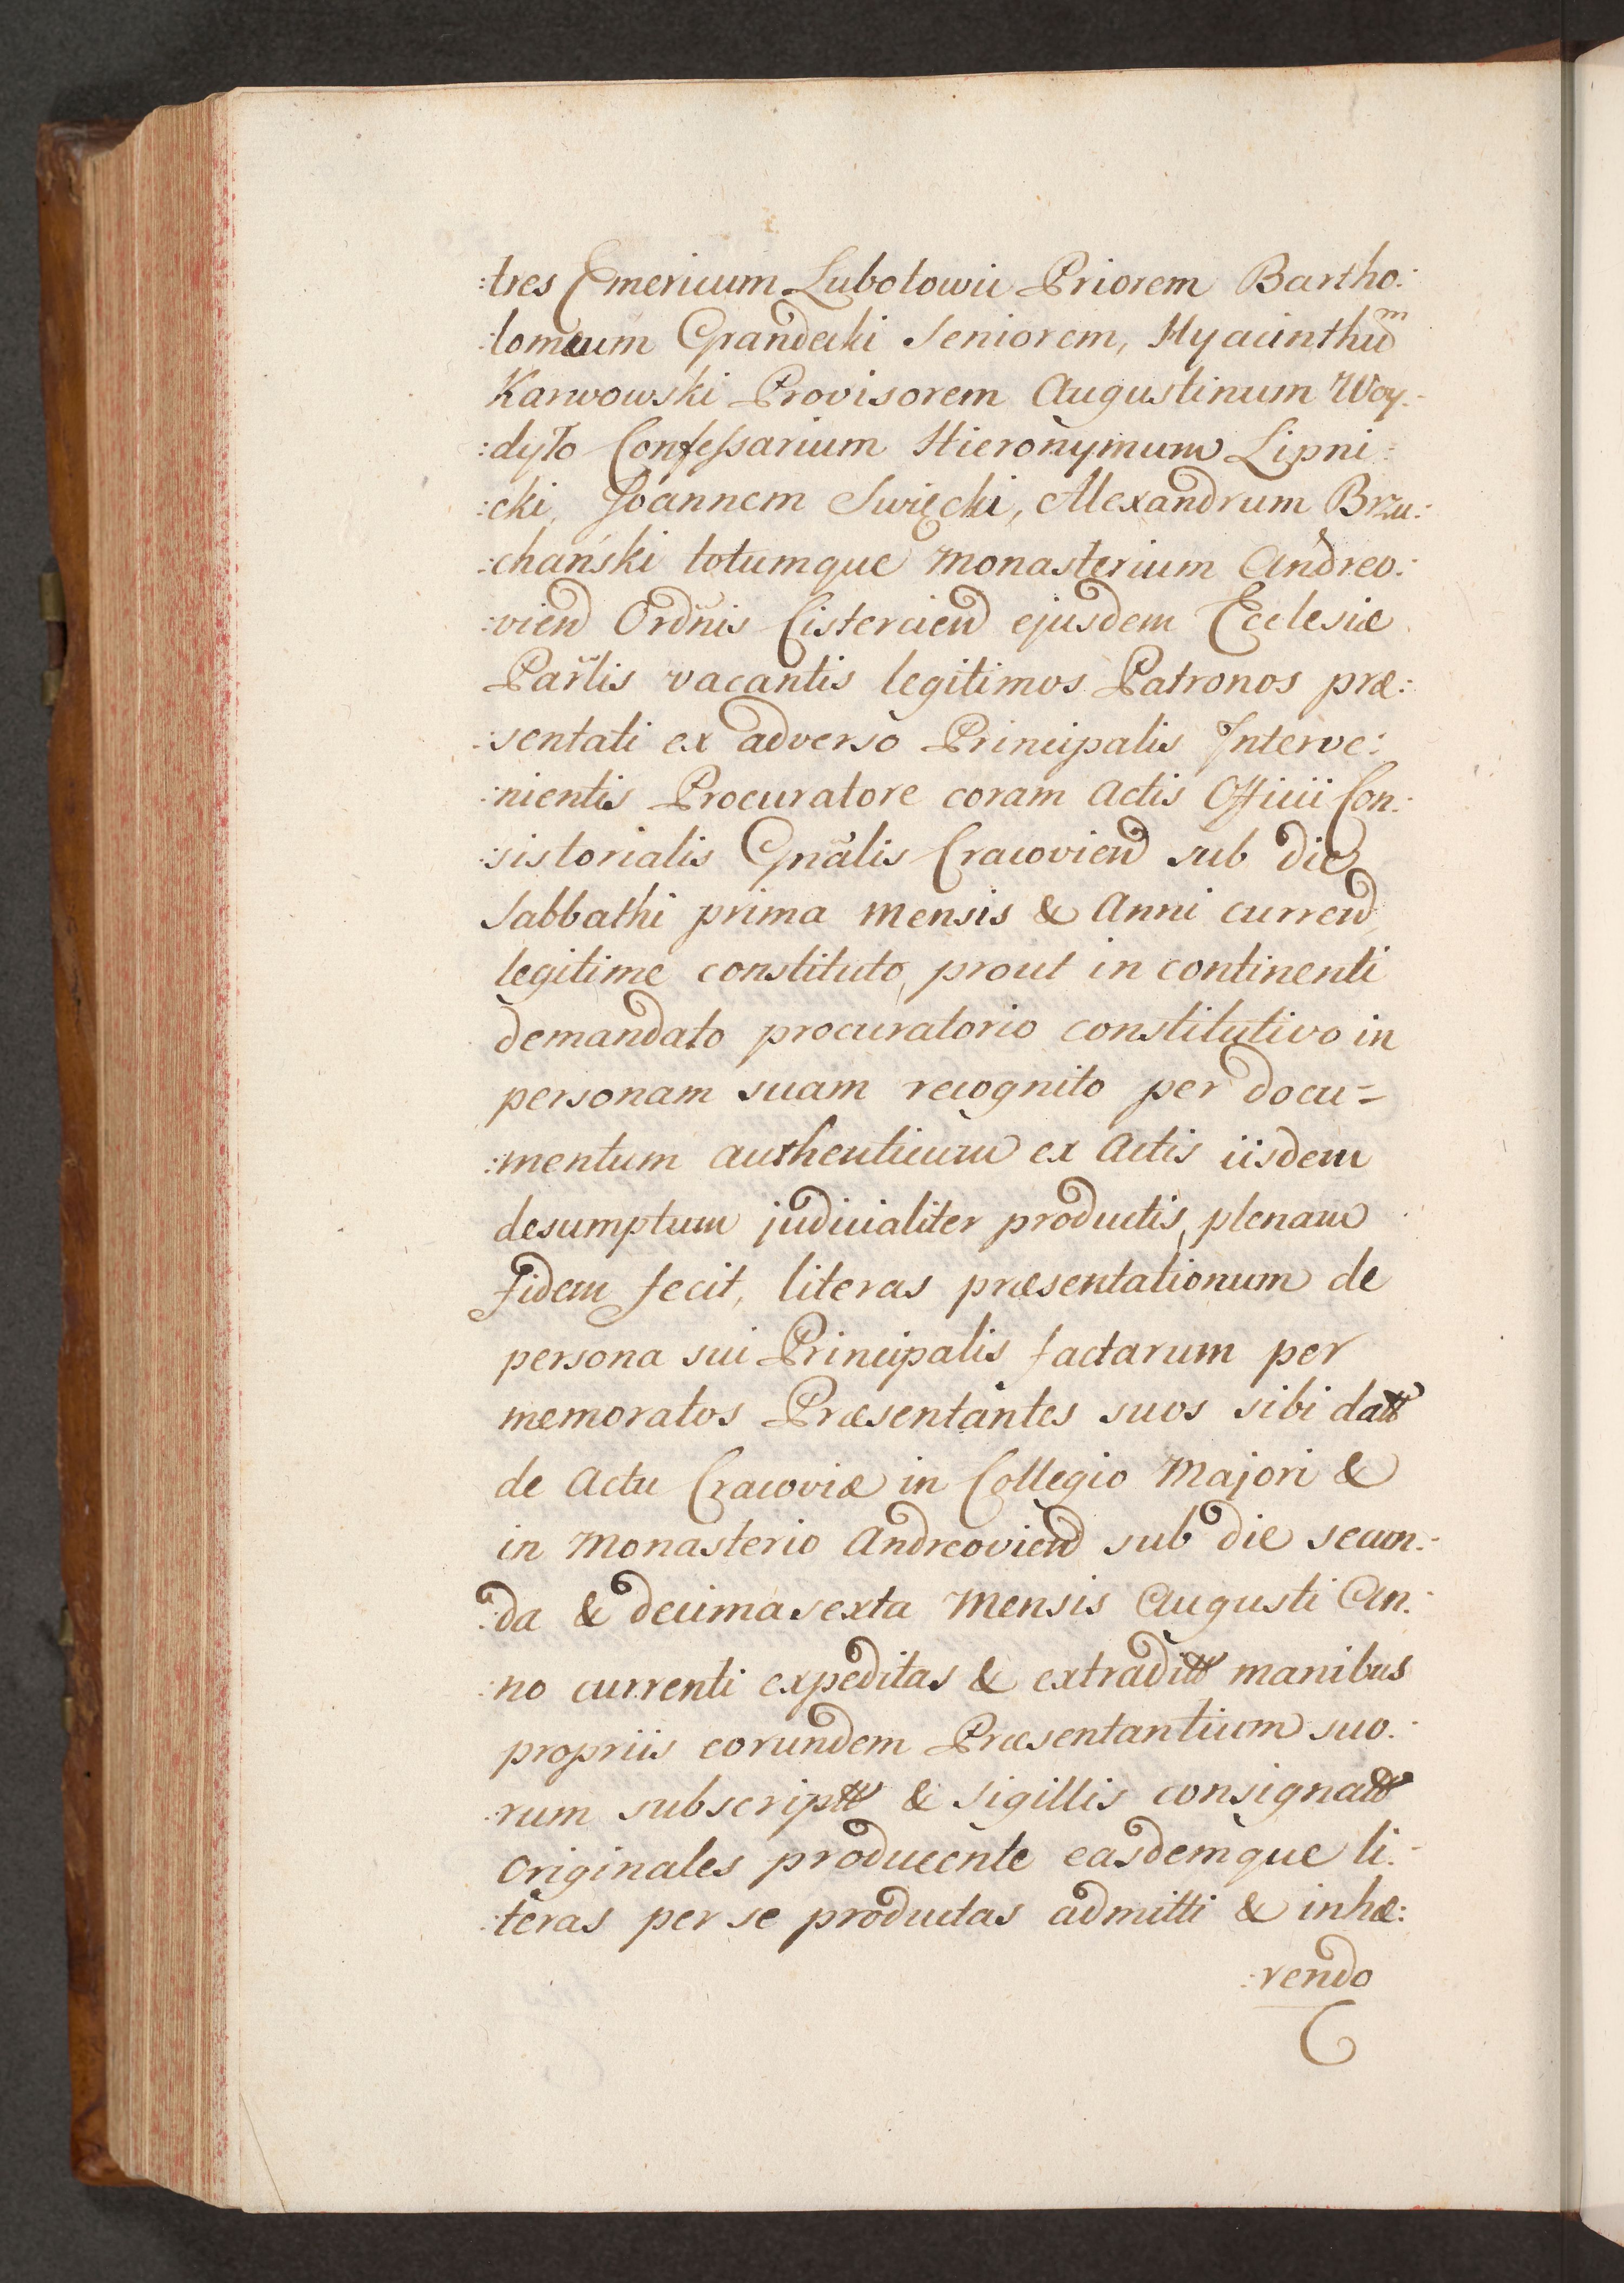 :tres Emericum Lubotowic Priorem Bartho:
:lomæum Grandecki Seniorem, Hyacinthu͠m
Karwowski Provisorem Augustinum Woy:
:dyło Confessarium Hieronymum Lipni:
:cki, Joannem Swięcki, Alexandrum Brzu:
:chański totumque Monasterium Andreo:
:vien̄ Ordn̄is Cistercien̄ ejusdem Ecclesiæ
Par̄lis vacantis legitimos Patronos præ:
:sentati ex adverso Principalis Interve:
:nientis Procuratore coram Actis Officii Con:
:sistorialis Gnālis Cracovien̄ sub die
Sabbathi prima Mensis & Anni curren̄
legitime constituto, prout in continenti
demandato procuratorio constitutivo in
personam suam recognito per docu=
:mentum authenticum ex Actis iisdem
desumptum judicialiter productis, plenam
fidem fecit, literas præsentationum de
persona sui Principalis factarum per
memoratos Præsentantes suos sibi datt
de Actu Cracoviæ in Collegio Majori &
in Monasterio Andreovien̄ sub die secun:
:da & decima sexta Mensis Augusti An:
:no currenti expeditas & extraditt manibus
propriis eorundem Præsentantium suo:
:rum subscriptt & Sigillis consignatt
Originales producente easdemque li:
:teras per se productas admitti & inhæ:
:rendo